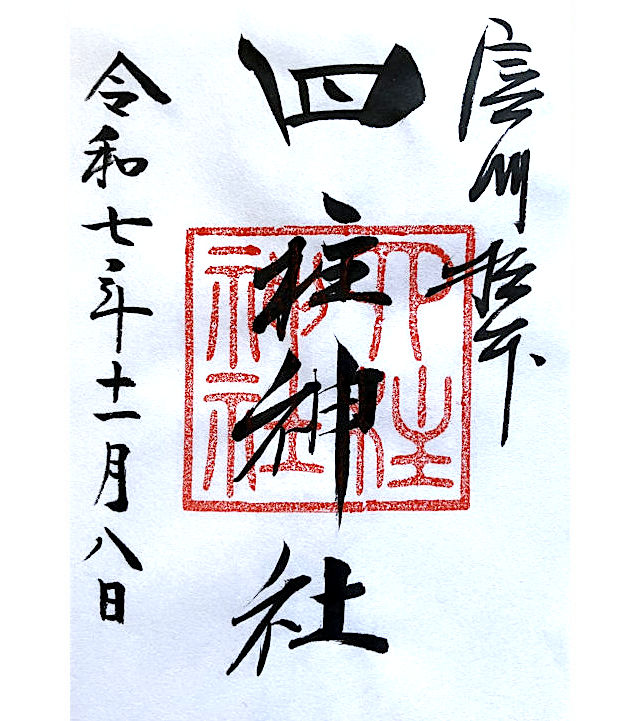 信州松本
四柱神社
四柱
神社
令和七年十一月八日